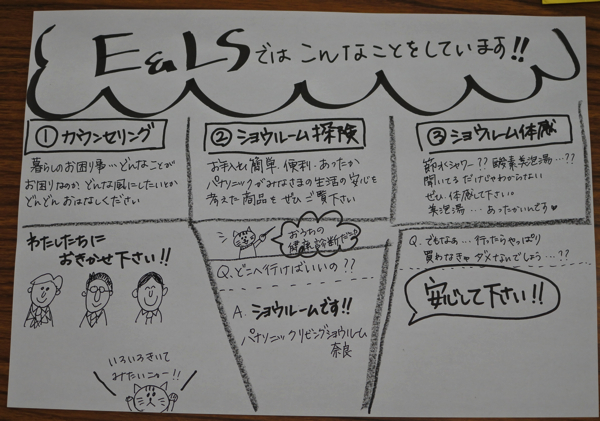 E&LSでは こんなことをしています!!
① カウンセリング
暮らしのお困り事…どんなことが
お困りなのか、どんな風にしたいとか
どんどん おはなしください
わたしたちに
おきかせ下さい!!
いろいろきいて
みたいニャー!!
② ショウルーム探険
お手入れ簡単、便利、あったか
パナソニックがみなさまの生活の安心を
考えた商品をぜひご覧下さい
おうちの
健康診断だっ。
Q. どこへ行けばいいの??
A. ショウルームです!!
パナソニックリビングショウルーム
奈良
③ ショウルーム体感
節水シャワー?? 酸素美泡湯…??
聞いてるだけじゃわからない
ぜひ、体感して下さい。
美泡湯…あったかいんです♥
Q. でもなぁ…行ったらやっぱり
買わなきゃダメなんでしょう…??
安心して下さい!!